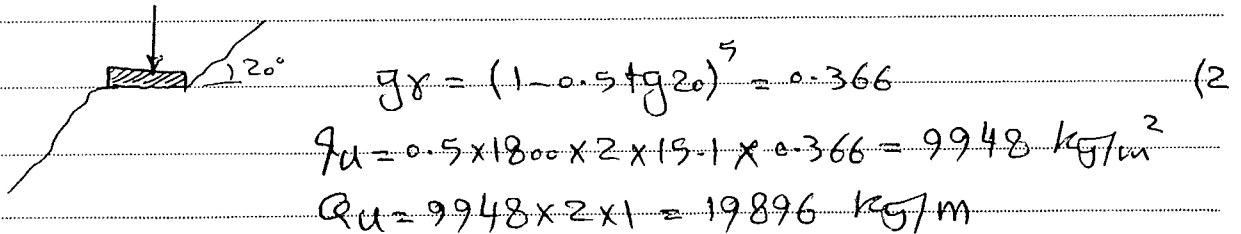 20°
gγ = (1-0.5 tg20)^5 = 0.366 (2
qu = 0.5×1800×2×15.1×0.366 = 9948 kg/m²
Qu = 9948×2×1 = 19896 kg/m